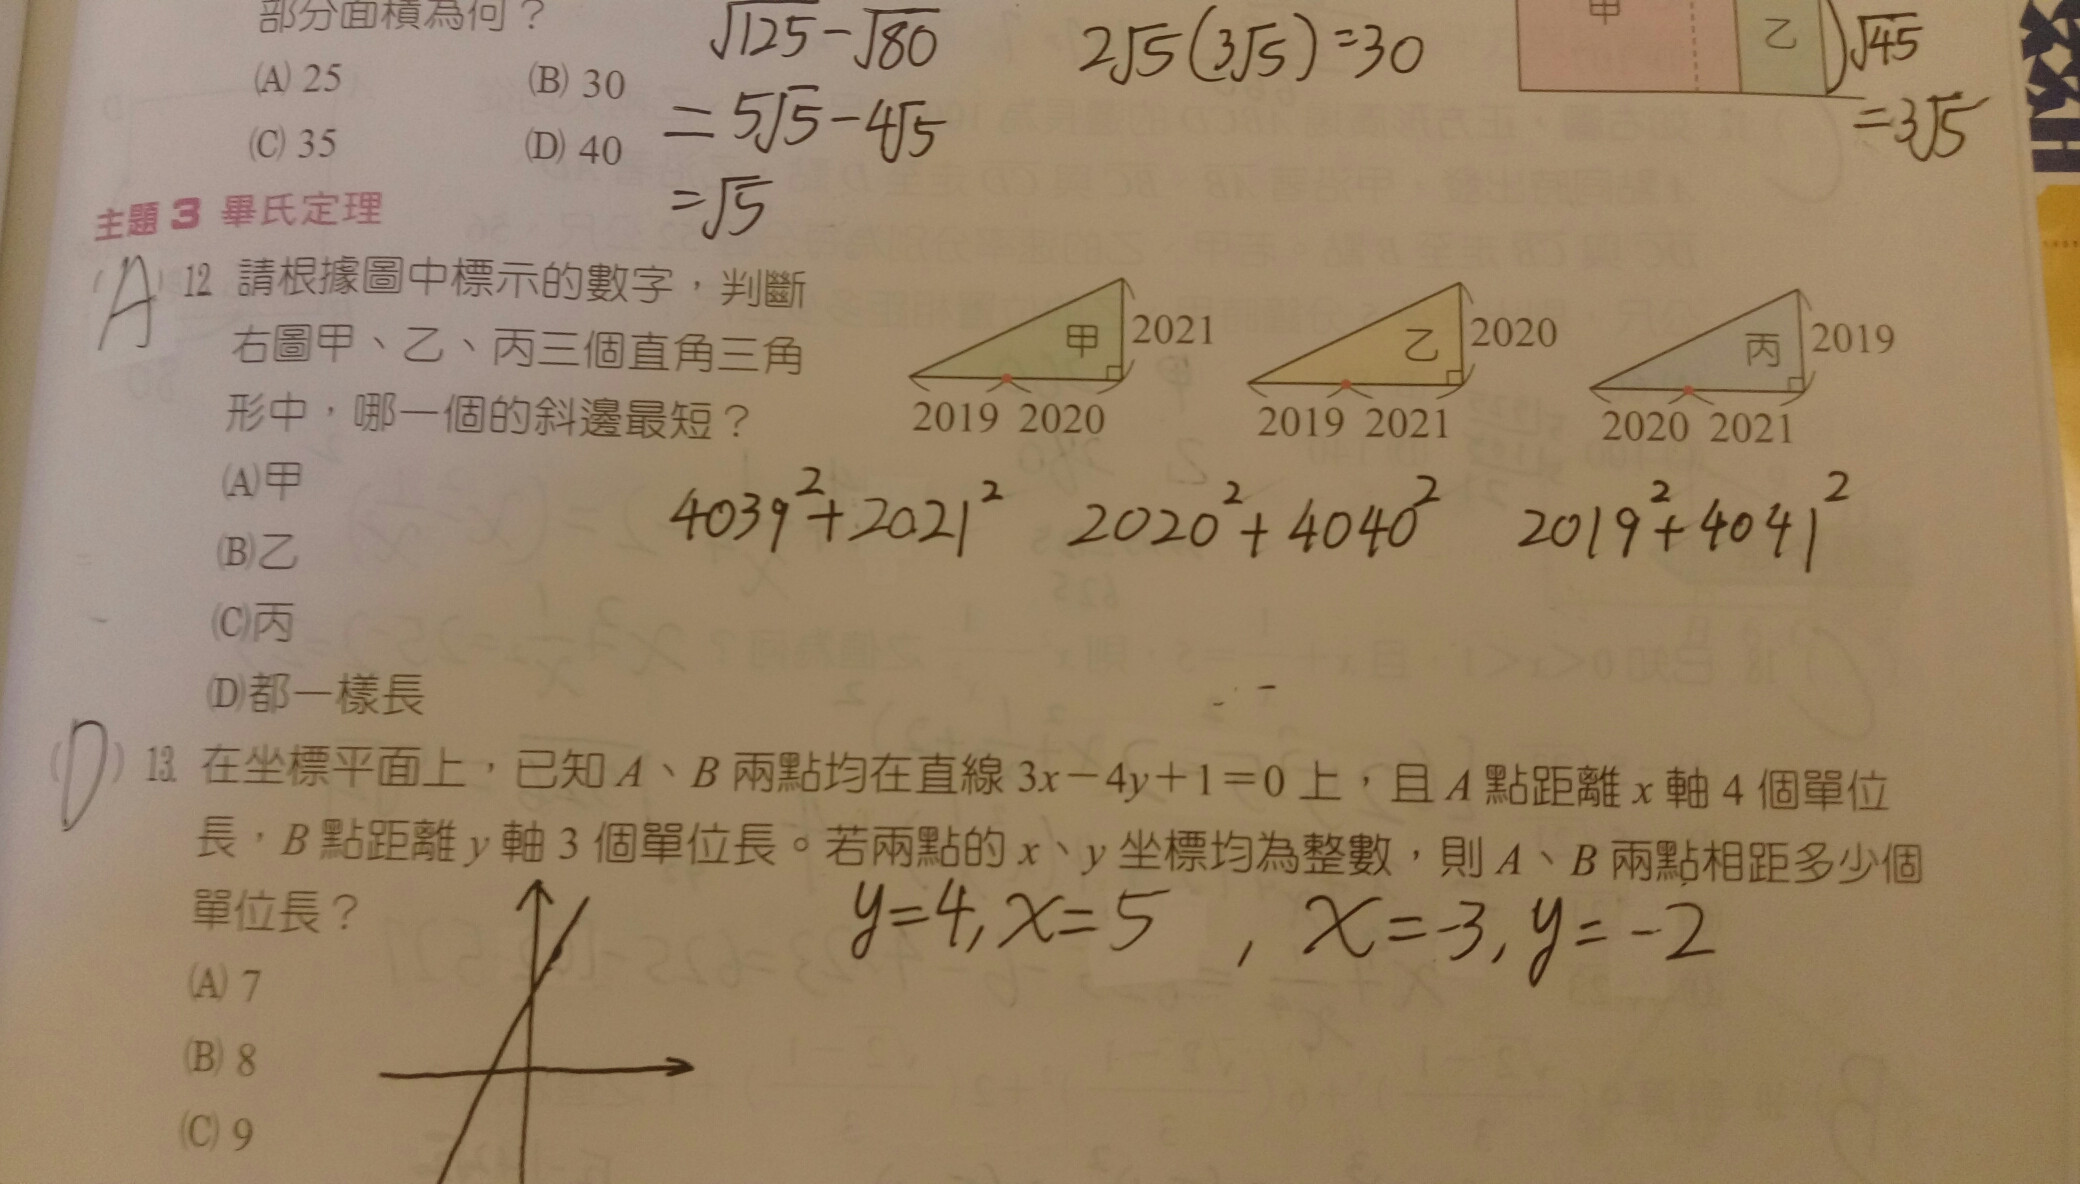 部分面積為何？
(A) 25
(B) 30
(C) 35
(D) 40
√125-√80
=5√5-4√5
=√5
2√5(3√5)=30
甲
乙
√45
=3√5
主題3 畢氏定理
(A) 12. 請根據圖中標示的數字，判斷
右圖甲、乙、丙三個直角三角
形中，哪一個的斜邊最短？
(A)甲
(B)乙
(C)丙
(D)都一樣長
甲
2021
2019 2020
乙
2020
2019 2021
丙
2019
2020 2021
4039²+2021²
2020²+4040²
2019²+4041²
(D) 13. 在坐標平面上，已知 A、B 兩點均在直線 3x－4y＋1＝0 上，且 A 點距離 x 軸 4 個單位
長，B 點距離 y 軸 3 個單位長。若兩點的 x、y 坐標均為整數，則 A、B 兩點相距多少個
單位長？
(A) 7
(B) 8
(C) 9
y=4, x=5 , x=-3, y=-2